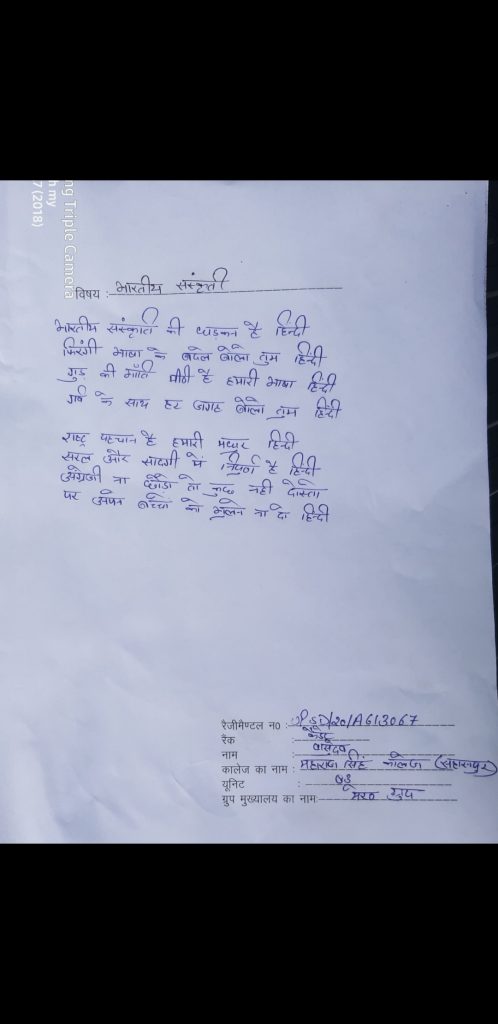 ng Triple Camera
h my
7 (2018)
विषय : भारतीय संस्कृती
भारतीय संस्कृति की धड़कन है हिन्दी
फिरंगी भाषा के बदले बोलो तुम हिन्दी
गुड़ की भाँति मीठी है हमारी भाषा हिन्दी
गर्व के साथ हर जगह बोलो तुम हिन्दी
राष्ट्र पहचान है हमारी मधुर हिन्दी
सरल और सादगी में निपुर्ण है हिन्दी
अंग्रेजी ना छोडो तो कुछ नही दोस्तो
पर अपने बच्चो को भुलने ना दो हिन्दी
रैजीमैण्टल न0 : SD/20/A613067
रैंक : कैडेट
नाम : वासुदेव
कालेज का नाम : महाराज सिंह कॉलेज (सहारनपुर)
यूनिट :
ग्रुप मुख्यालय का नाम: मेरठ ग्रुप